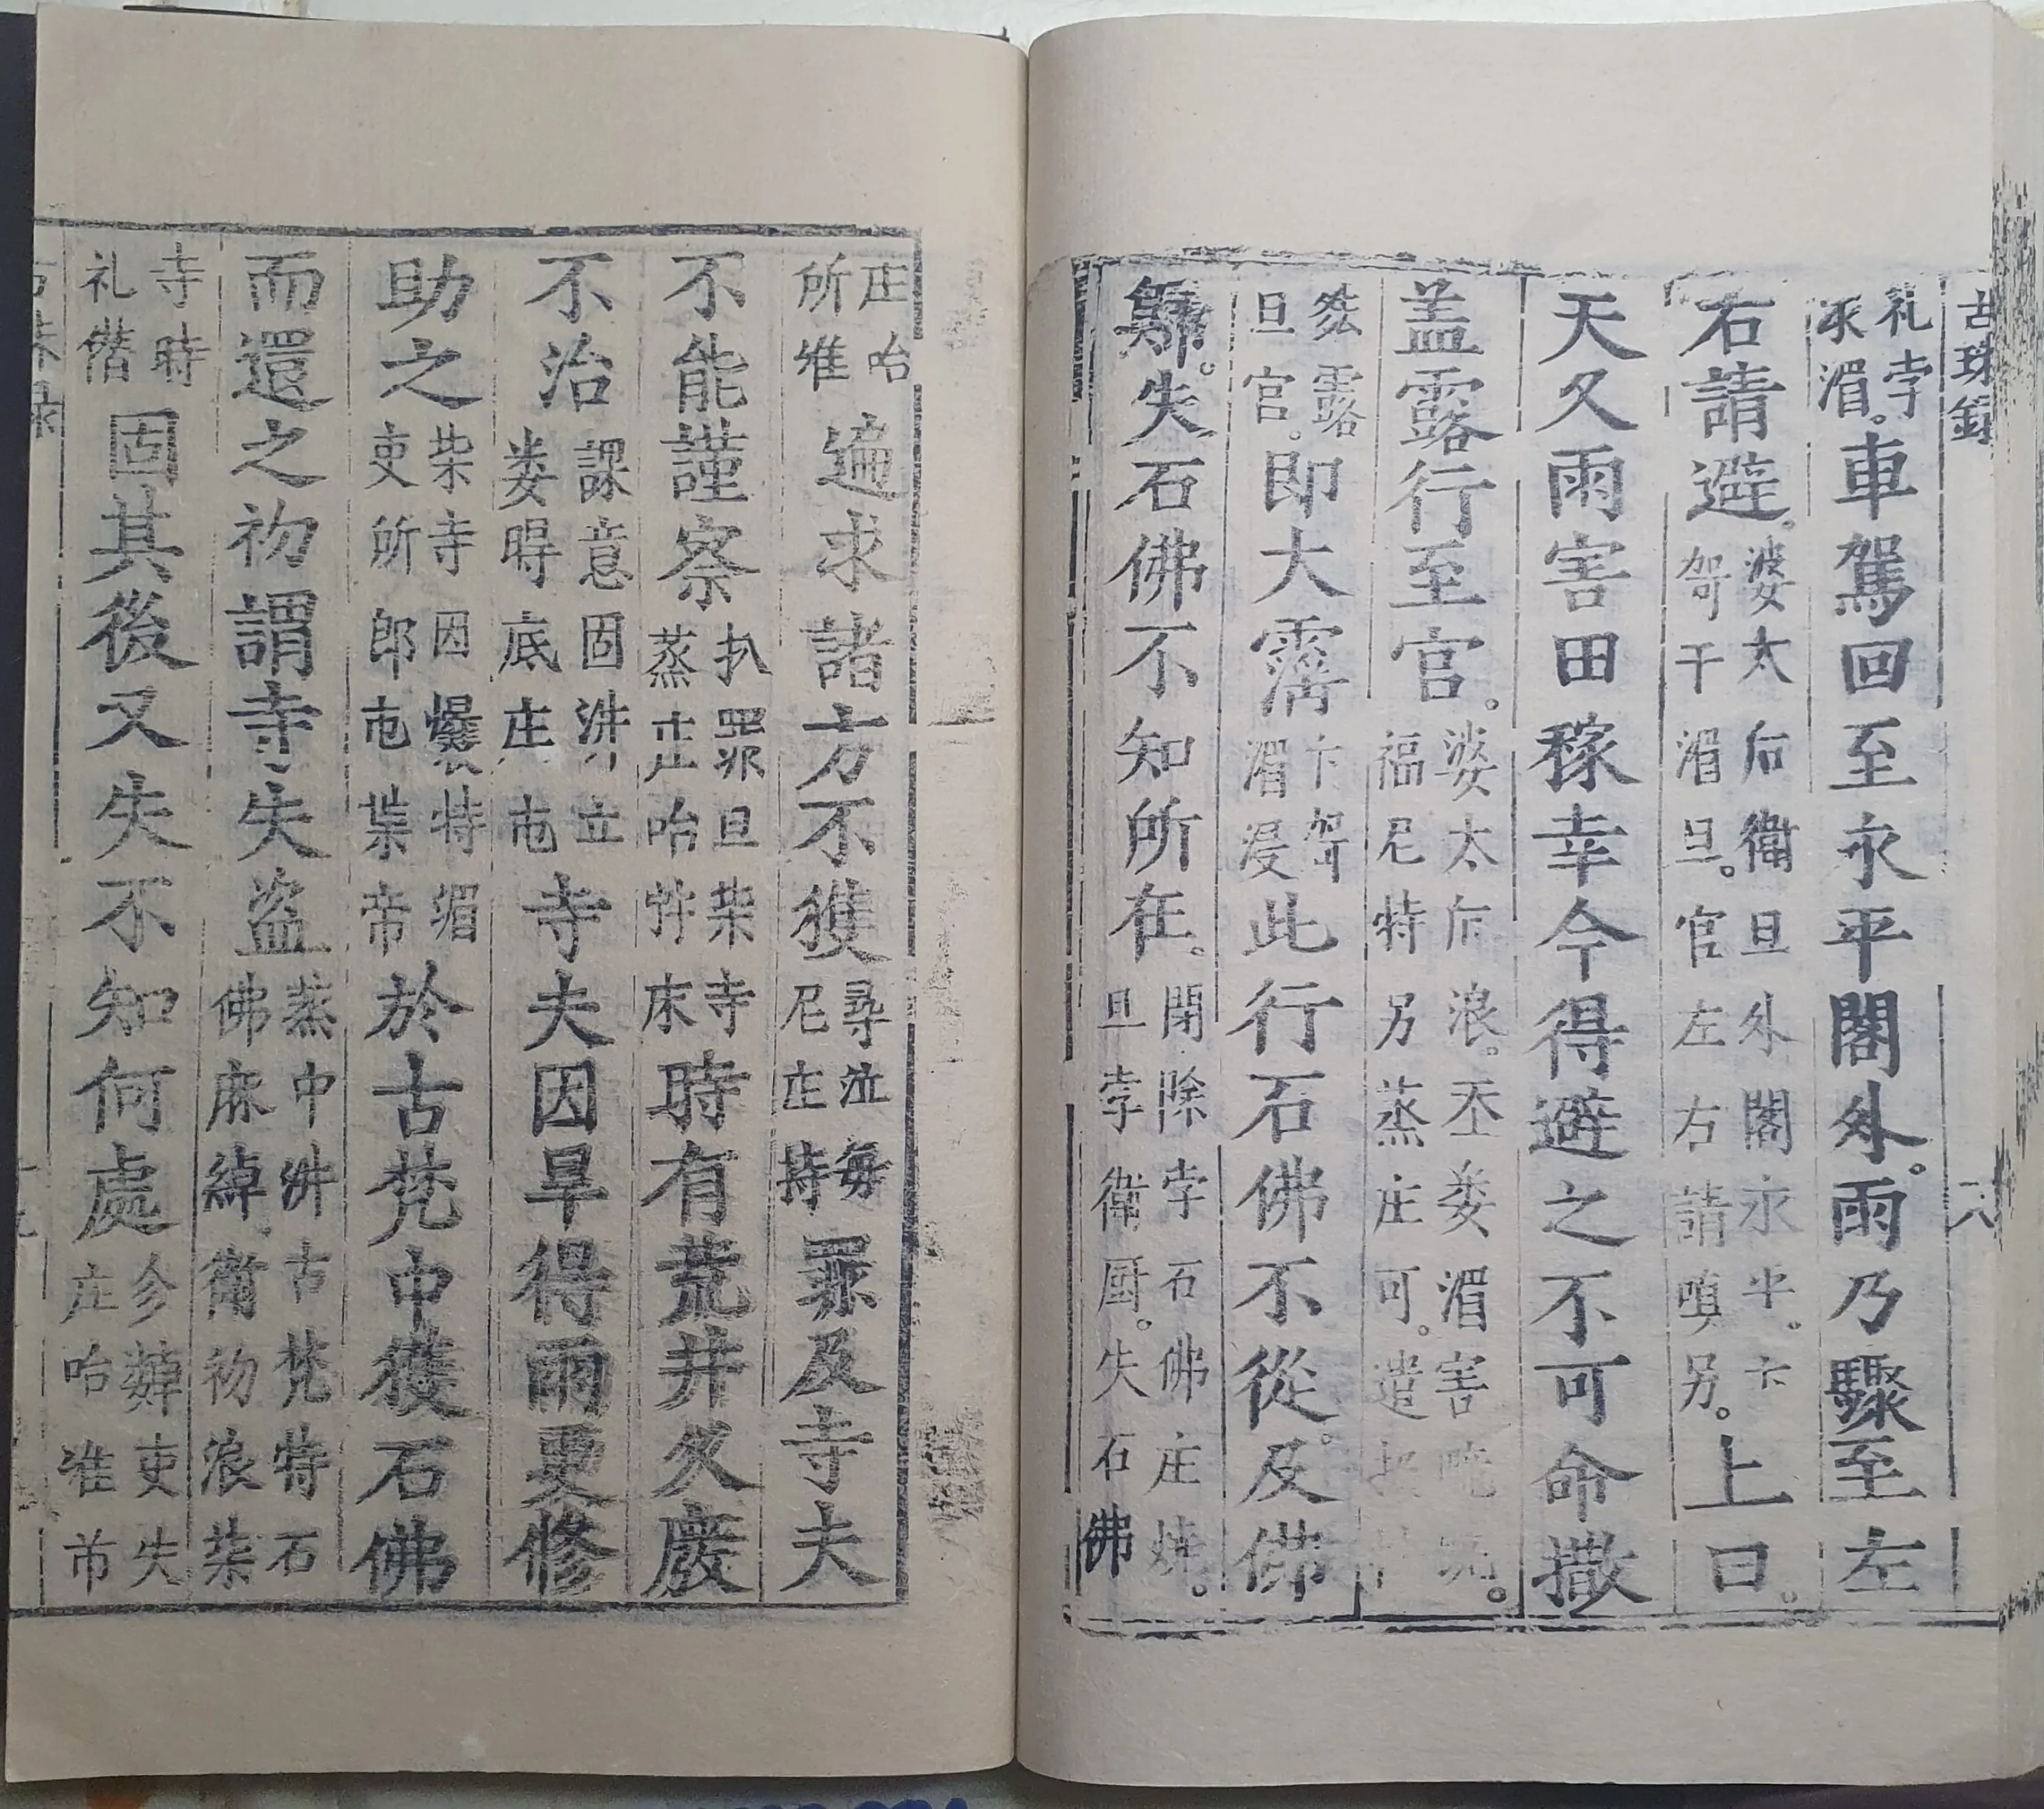 古珠錄
礼孛承湄。車駕回至永平閣外。雨乃驟至左
右請避。婆太后衛旦外閣永平。卞駕干湄旦。官左右請嗔另。上曰。
天久雨害田稼幸今得避之不可命撒
盖露行至官。婆太后浪。丕娄湄害福尼特另蒸庄可。遣
露旦官。即大霈卞駕湄浸此行石佛不從。及佛
歸。失石佛不知所在。閉除孛石佛庄旦孛衛厨。失石佛
庄咍所准遍求諸方不獲尋泣每尼庄特罪及寺夫
不能謹察扒罪旦柴寺蒸庄咍竹床時有荒井久廢
不治課意固汫立娄時底庄市寺夫因旱得雨更修
助之柴寺因爆特湄吏所郎市葉帝於古梵中獲石佛
而還之初謂寺失盗蒸中汫古梵特石佛麻綽衛初浪柴
寺時礼偺固其後又失不知何處㐱歸吏失庄咍准市